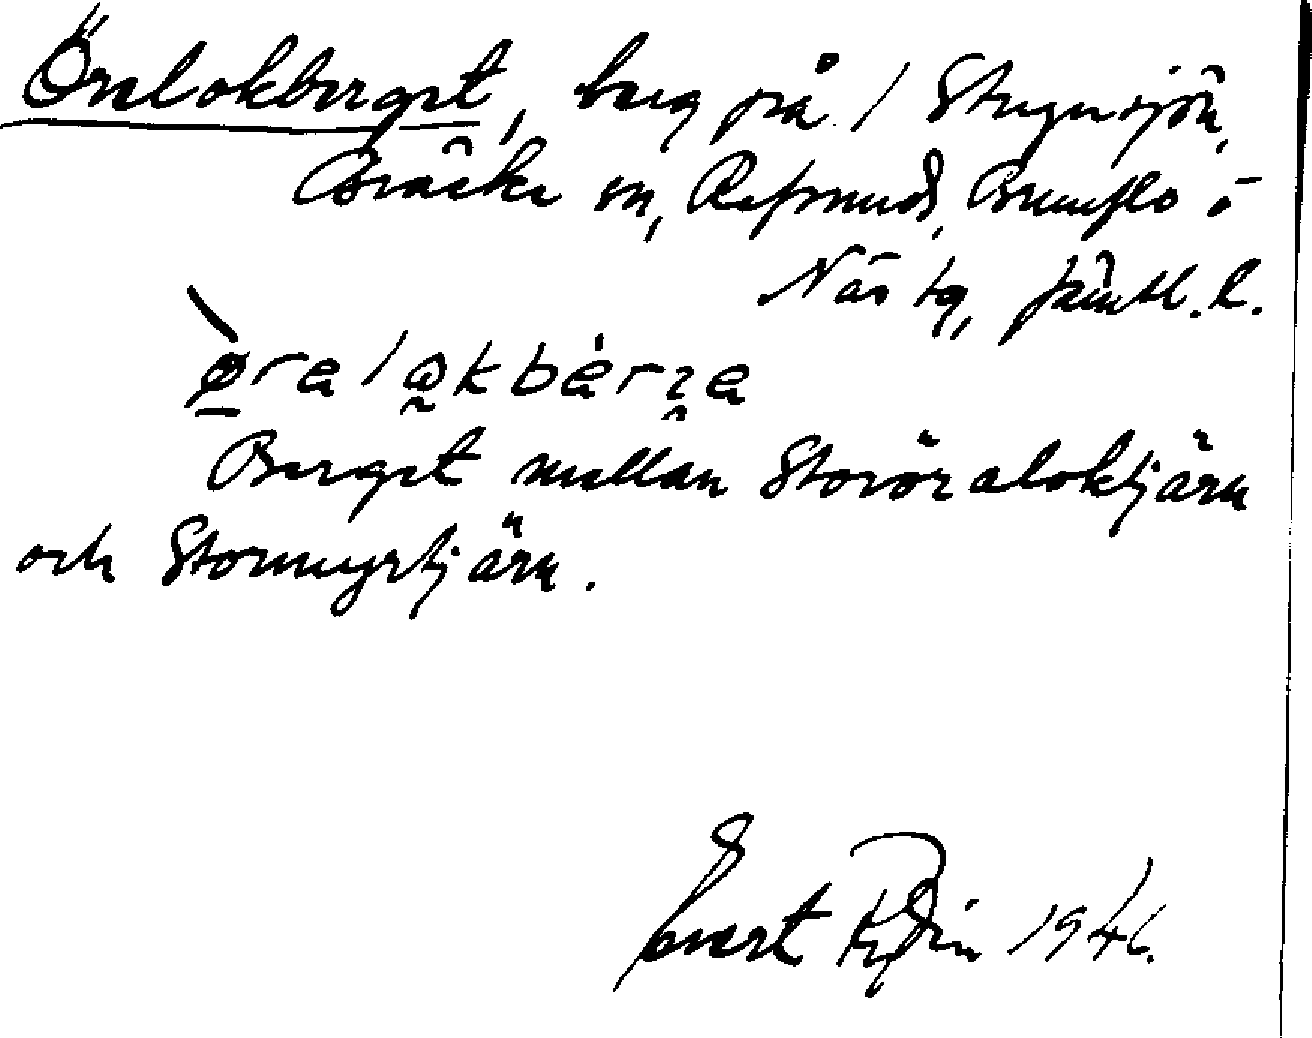 Öralokberget, berg på / Stugusjön,
Bräcke sn, Refsunds, Brunflo o
Näs tg, Jämtl. l.
øralɷkbèrʒa
Berget mellan Storöraloktjärn
och Stormyrtjärn.
Evert 1946.